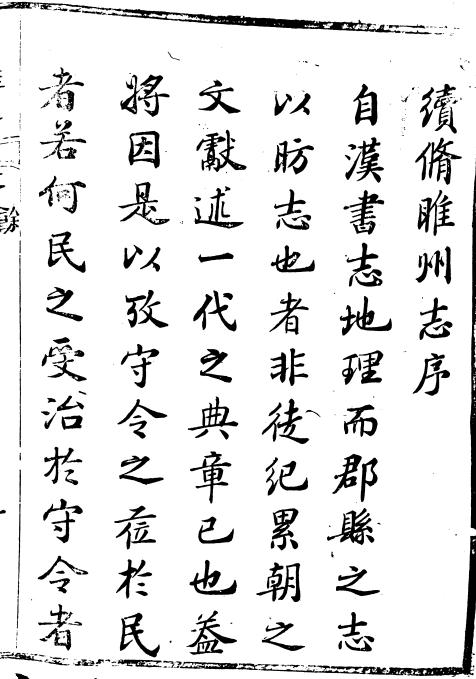 續脩睢州志序
自漢書志地理而郡縣之志
以昉志也者非徒紀累朝之
文獻述一代之典章已也葢
將因是以攷守令之蒞於民
者若何民之受治於守令者